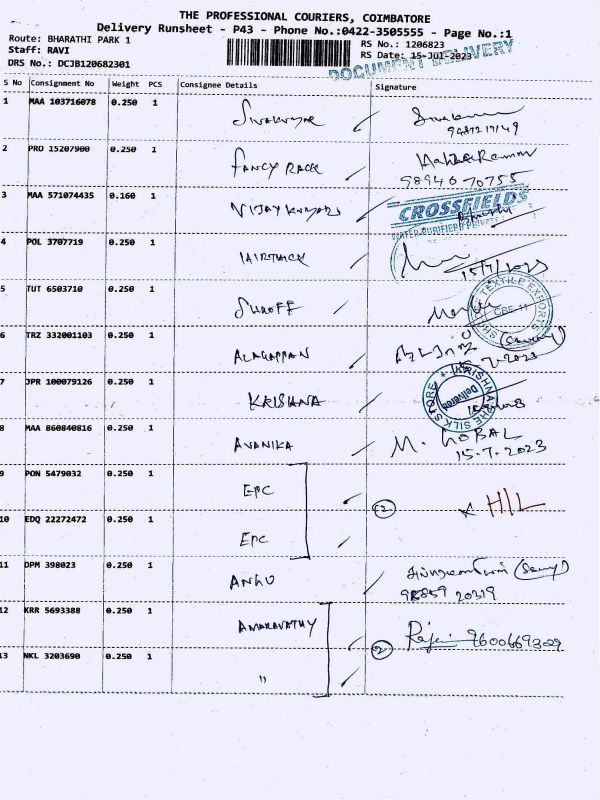 THE PROFESSIONAL COURIERS, COIMBATORE
Delivery Runsheet - P43 - Phone No.:0422-3505555 - Page No.:1
Route: BHARATHI PARK 1 RS No.: 1206823
Staff: RAVI RS Date: 15-Jul-2023
DRS No.: DCJB120682301 DOCUMENT DELIVERY
S No Consignment No Weight PCS Consignee Details Signature
1 MAA 103716078 0.250 1
2 PRO 15207900 0.250 1 FANCY
98940 70755
3 MAA 571074435 0.160 1 VIJAY
CROSSFIELDS
WATER PURIFIERS PRIVATE
4 POL 3707719 0.250 1 HAIRTRACK
15/7/2023
5 TUT 6503710 0.250 1
TEXTILE EXPORTS
CBE-11
6 TRZ 332001103 0.250 1 ALAGAPPAN
7 JPR 100079126 0.250 1 KRISHNA
SILK STORE
Delivered
8 MAA 860840816 0.250 1 AVANIKA M. GOBAL
15.7.2023
9 PON 5479032 0.250 1 EPC
② H/L
10 EDQ 22272472 0.250 1 EPC
11 DPM 398023 0.250 1
98859 20319
12 KRR 5693388 0.250 1 AMARAVATHY
② 9600669309
13 NKL 3203690 0.250 1 "